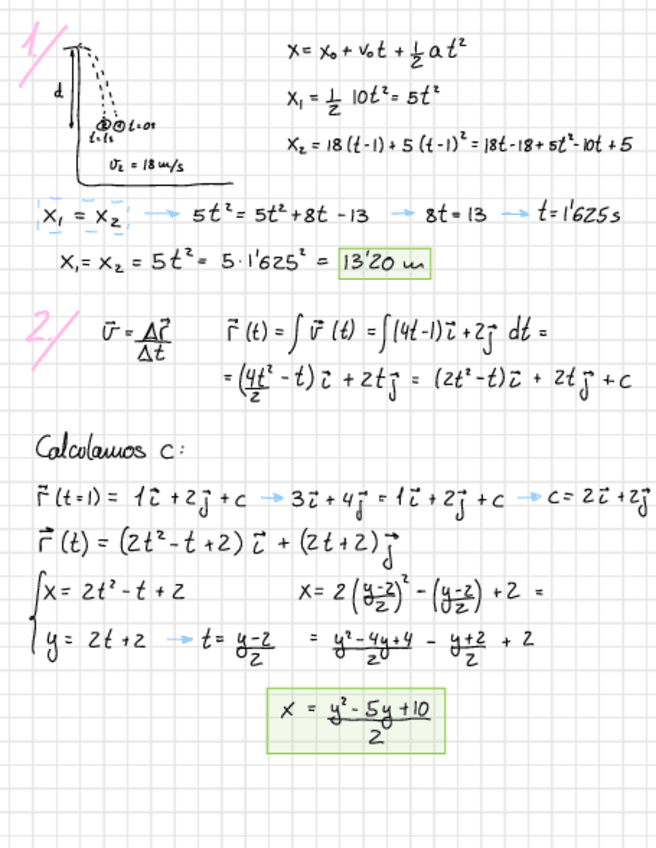 1/
x = x₀ + v₀t + 1/2 at²
d
x₁ = 1/2 10t² = 5t²
② ① t=0s
t=1s
x₂ = 18(t-1) + 5(t-1)² = 18t-18+5t²-10t+5
v₂ = 18 m/s
x₁ = x₂ → 5t² = 5t²+8t-13 → 8t=13 → t=1'625s
x₁ = x₂ = 5t² = 5·1'625² = 13'20 m
2/
v⃗ = Δr⃗/Δt r⃗(t) = ∫ v⃗(t) = ∫(4t-1)i⃗ + 2j⃗ dt =
= (4t²/2 - t) i⃗ + 2t j⃗ = (2t²-t) i⃗ + 2t j⃗ + c
Calcolamos c:
r⃗(t=1) = 1i⃗ + 2j⃗ + c → 3i⃗ + 4j⃗ = 1i⃗ + 2j⃗ + c → c = 2i⃗ + 2j⃗
r⃗(t) = (2t²-t+2) i⃗ + (2t+2) j⃗
x = 2t² - t + 2 x = 2((y-2)/2)² - ((y-2)/2) + 2 =
y = 2t + 2 → t = (y-2)/2 = (y²-4y+4)/2 - (y+2)/2 + 2
x = (y² - 5y + 10)/2